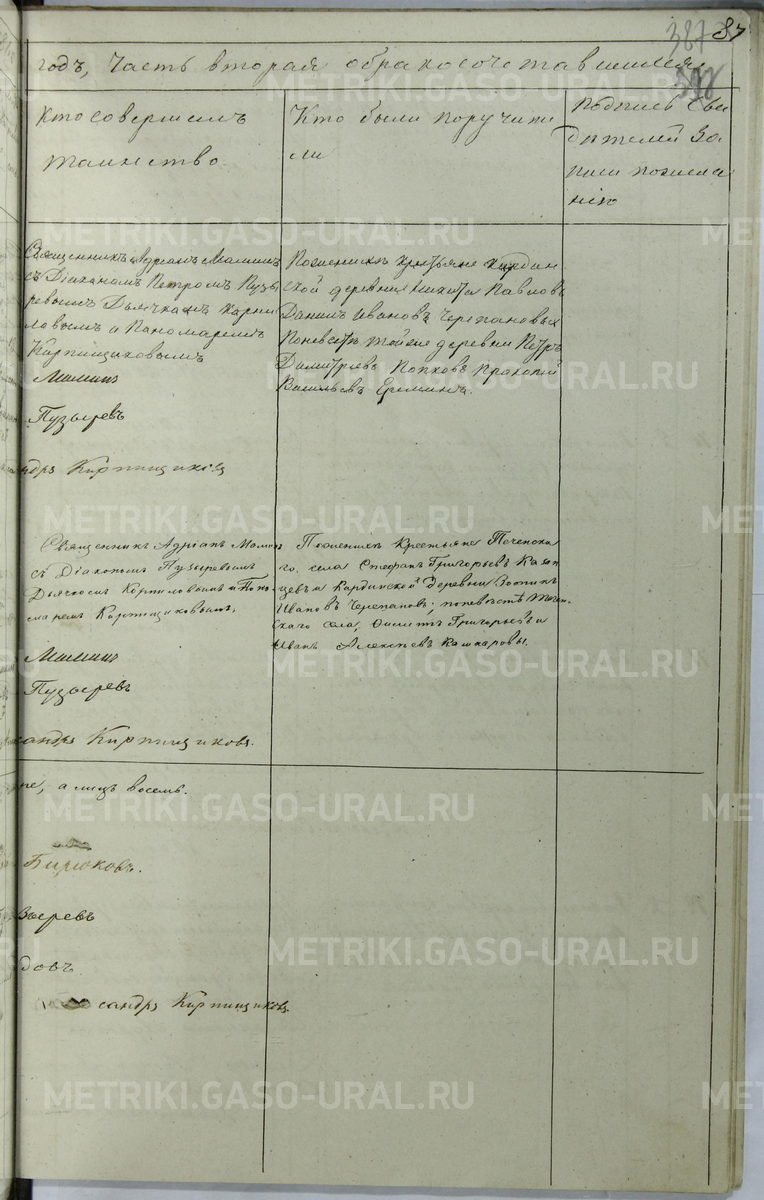 387 87
398
годъ, часть вторая о бракосочетавшихся,
Кто совершалъ
таинство.
Кто были поручите
ли
Подпись сви
дѣтелей за
писи по желa
нію
Священникъ Адріанъ Маминъ
съ Діакономъ Петромъ Пузы
ревымъ Дьячкомъ Карпи
ловымъ и Пономаремъ
Кирпищиковымъ
Маминъ
Пузыревъ
андръ Кирпищиковъ
По женихѣ крестьяне Кардин
ской деревни Никита Павловъ
Данилъ Ивановъ Черепановых
По невѣстѣ той же деревни Петръ
Димитріевъ Попковъ Пракопій
Васильевъ Ереминъ.
Священникъ Адріанъ Мамин
съ Діакономъ Пузыревымъ
Дьячкомъ Карпиловымъ и Поно-
маремъ Кирпищиковымъ,
Маминъ
Пузыревъ
сандръ Кирпищиковъ.
По женихѣ Крестьяне Теченска
го села Стефанъ Григорьевъ Казан
цевъ и Кардинской деревни Зотикъ
Ивановъ Черепановъ; по невѣстѣ Течен-
скаго села, Филиппъ Григорьевъ и
Иванъ Алексѣевъ Кашкаровы.
не, а лицъ восемь.
Бирюковъ.
зыревъ
довъ
сандръ Кирпищиковъ
METRIKI.GASO-URAL.RU